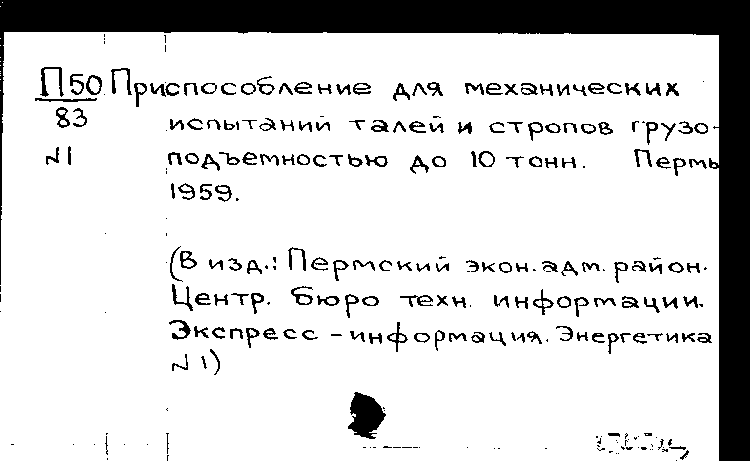 П50 Приспособление для механических
83 испытаний талей и стропов грузо-
N1 подъемностью до 10 тонн. Пермь
1959.
(В изд.: Пермский экон. адм. район.
Центр. бюро техн. информации.
Экспресс - информация. Энергетика
N 1)